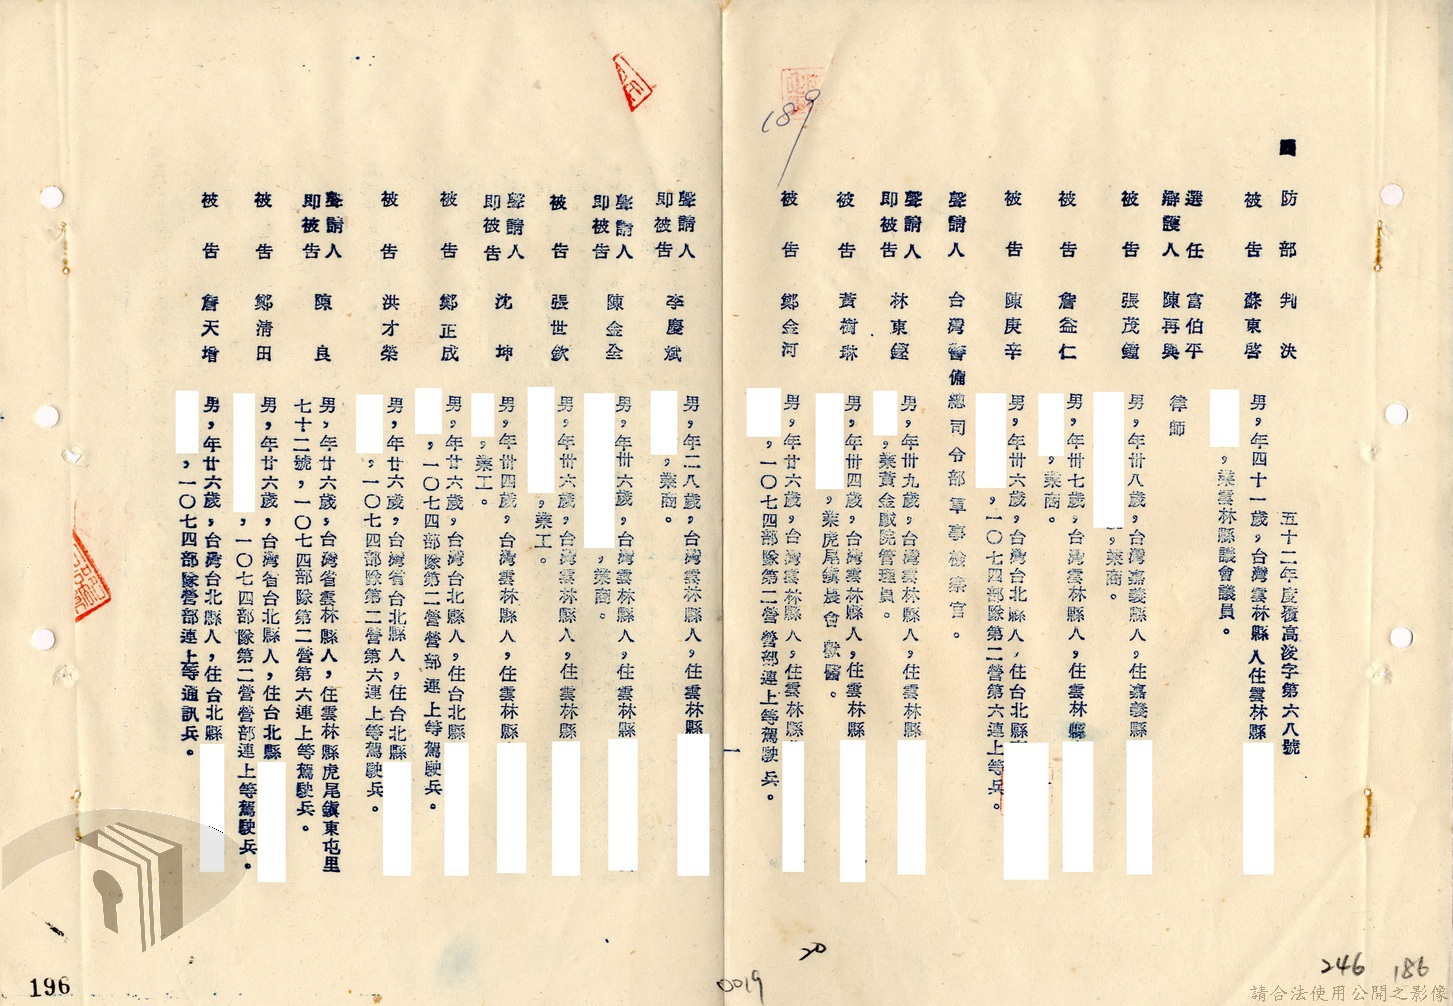 國防部判決
五十二年度覆高浚字第六八號
被告 蘇東啓 男，年四十一歲，台灣雲林縣人住雲林縣
，業雲林縣議會議員。
選任 富伯平
辯護人 陳再興 律師
被告 張茂鐘 男，年卅八歲，台灣嘉義縣人，住嘉義縣
，業商。
被告 詹益仁 男，年卅七歲，台灣雲林縣人，住雲林縣
，業商。
被告 陳庚辛 男，年卅六歲，台灣台北縣人，住台北縣
，一〇七四部隊第二營第六連上等兵。
聲請人 台灣警備總司令部軍事檢察官。
聲請人
即被告 林東鏗 男，年卅九歲，台灣雲林縣人，住雲林縣
，業黃金戲院管理員。
被告 黃樹琳 男，年卅四歲，台灣雲林縣人，住雲林縣
，業虎尾鎮農會獸醫。
被告 鄭金河 男，年廿六歲，台灣雲林縣人，住雲林縣
，一〇七四部隊第二營營部連上等駕駛兵。
一
聲請人
即被告 李慶斌 男，年二八歲，台灣雲林縣人，住雲林縣
，業商。
聲請人
即被告 陳金全 男，年卅六歲，台灣雲林縣人，住雲林縣
，業商。
被告 張世欽 男，年卅六歲，台灣雲林縣人，住雲林縣
，業工。
聲請人
即被告 沈坤 男，年卅四歲，台灣雲林縣人，住雲林縣
，業工。
被告 鄭正成 男，年廿六歲，台灣台北縣人，住台北縣
，一〇七四部隊第二營營部連上等駕駛兵。
被告 洪才榮 男，年廿六歲，台灣省台北縣人，住台北縣
，一〇七四部隊第二營第六連上等駕駛兵。
聲請人
即被告 陳良 男，年廿六歲，台灣省雲林縣人，住雲林縣虎尾鎮東屯里
七十二號，一〇七四部隊第二營第六連上等駕駛兵。
被告 鄭清田 男，年廿六歲，台灣省台北縣人，住台北縣
，一〇七四部隊第二營營部連上等駕駛兵。
被告 詹天增 男，年廿六歲，台灣台北縣人，住台北縣
，一〇七四部隊營部連上等通訊兵。
189
196
0019
20
246 186
請合法使用公開之影像